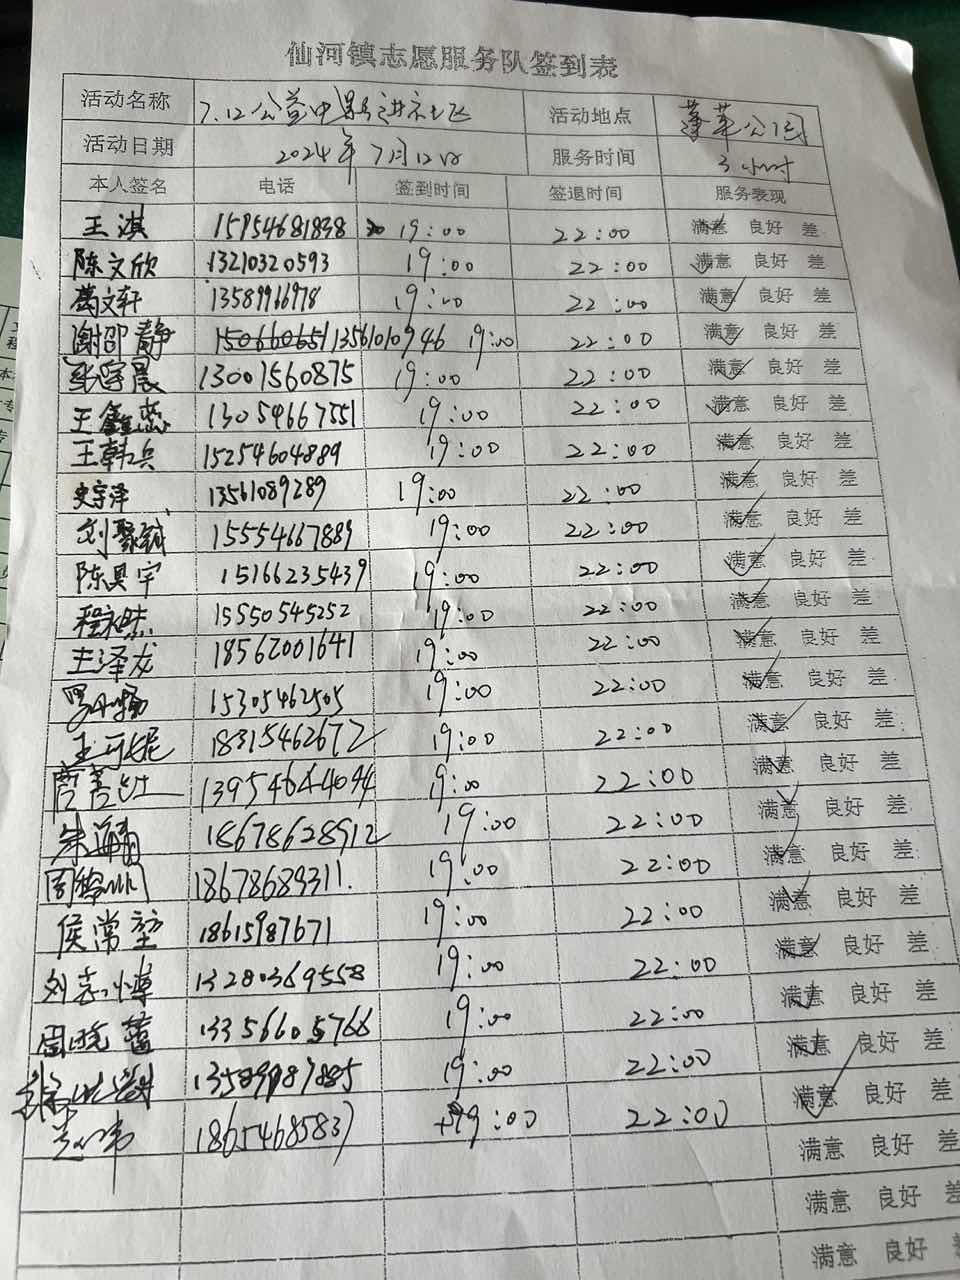 仙河镇志愿服务队签到表
活动名称 7.12公益电影进社区 活动地点 蓬莱公园
活动日期 2024年7月12日 服务时间 3小时
本人签名 电话 签到时间 签退时间 服务表现
王淇 15954681838 19:00 22:00 满意 良好 差
陈文欣 13210320593 19:00 22:00 满意 良好 差
葛文轩 13589966978 19:00 22:00 满意 良好 差
谢邵静 15066065113561010946 19:00 22:00 满意 良好 差
张宇晨 13001560875 19:00 22:00 满意 良好 差
王鑫蕊 13054667551 19:00 22:00 满意 良好 差
王韩兵 15254604889 19:00 22:00 满意 良好 差
史宇泽 13561089289 19:00 22:00 满意 良好 差
刘聚铖 15554667889 19:00 22:00 满意 良好 差
陈昊宇 15166235439 19:00 22:00 满意 良好 差
程永杰 15550545252 19:00 22:00 满意 良好 差
王泽龙 18562001641 19:00 22:00 满意 良好 差
15305462505 19:00 22:00 满意 良好 差
王可妮 18315462672 19:00 22:00 满意 良好 差
13954644094 19:00 22:00 满意 良好 差
朱海娟 18678628912 19:00 22:00 满意 良好 差
18678689311. 19:00 22:00 满意 良好 差
侯常堃 18615987671 19:00 22:00 满意 良好 差
刘志博 13280369558 19:00 22:00 满意 良好 差
周晓蕾 13356605766 19:00 22:00 满意 良好 差
13589987885 19:00 22:00 满意 良好 差
18654685837 19:00 22:00 满意 良好 差
满意 良好 差
满意 良好 差
满意 良好 差